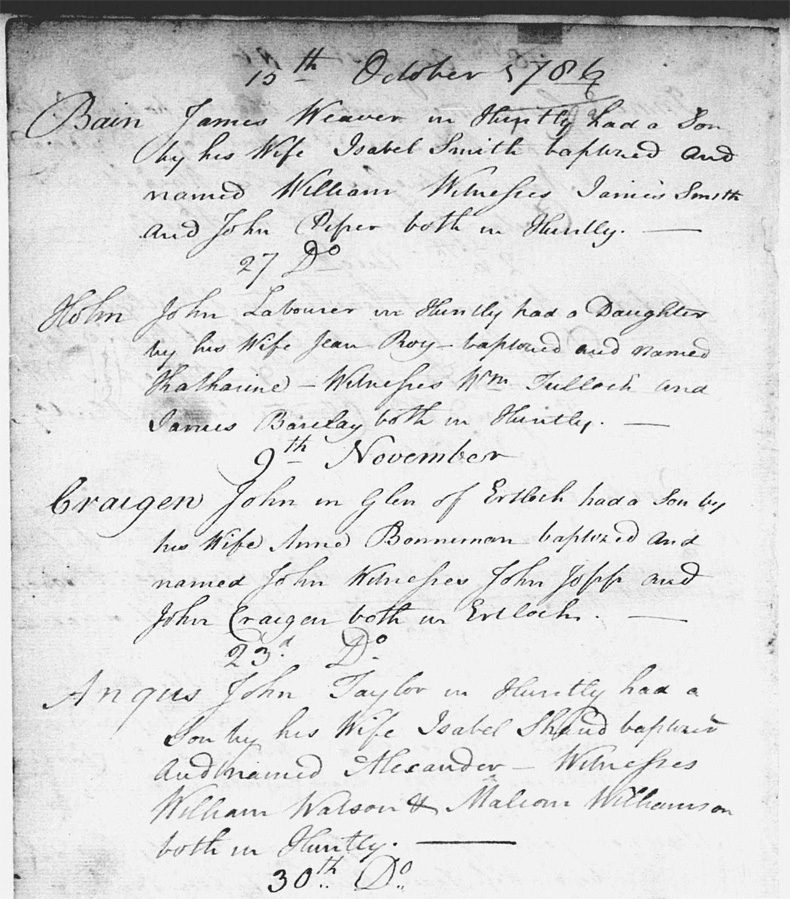 10th October 1786
Bain James Weaver in Huntly had a Son
by his Wife Isabel Smith baptized and
named William Witnesses James Smith
and John Piper both in Huntly.
27 Do
Hohn John Labourer in Huntly had a Daughter
by his Wife Jean Roy baptized and named
Katharine – Witnesses Wm Tulloch and
James Barclay both in Huntly.
9th November
Craigen John in Glen of Ertloch had a Son by
his Wife Anne Bonneman baptized and
named John Witnesses John Jopp and
John Craigen both in Ertloch.
23d Do
Angus John Taylor in Huntly had a
Son by his Wife Isabel Shand baptized
and named Alexander – Witnesses
William Watson & Williamson
both in Huntly.
30th Do